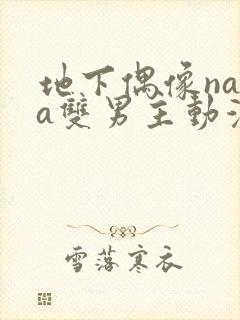 地下偶像na
a雙男主動
雪落寒衣